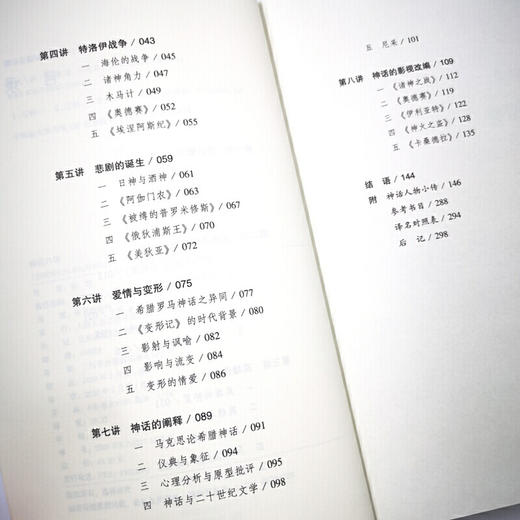 第四讲 特洛伊战争 / 043
一 海伦的战争 / 045
二 诸神角力 / 047
三 木马计 / 049
四 《奥德赛》 / 052
五 《埃涅阿斯纪》 / 055
第五讲 悲剧的诞生 / 059
一 日神与酒神 / 061
二 《阿伽门农》 / 063
三 《被缚的普罗米修斯》 / 067
四 《俄狄浦斯王》 / 070
五 《美狄亚》 / 072
第六讲 爱情与变形 / 075
一 希腊罗马神话之异同 / 077
二 《变形记》的时代背景 / 080
三 影射与讽喻 / 082
四 影响与流变 / 084
五 变形的情爱 / 086
第七讲 神话的阐释 / 089
一 马克思论希腊神话 / 091
二 仪典与象征 / 094
三 心理分析与原型批评 / 095
四 神话与二十世纪文学 / 098
五 尼采 / 101
第八讲 神话的影视改编 / 109
一 《诸神之战》 / 112
二 《奥德赛》 / 119
三 《伊利亚特》 / 122
四 《神火之盗》 / 128
五 《卡桑德拉》 / 135
结 语 / 144
附 神话人物小传 / 146
参考书目 / 288
译名对照表 / 294
后 记 / 298